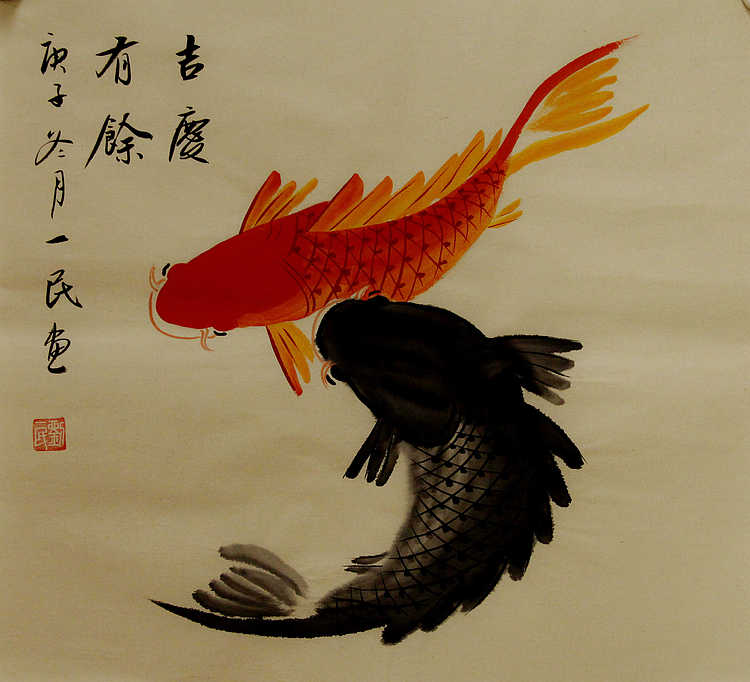 吉慶
有餘
庚子冬月一民畫
劉民